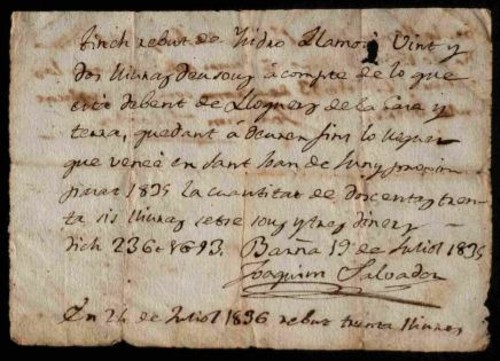 Tinch rebut de Isidro Llamosi Vint y
dos lliuras deu sous á compte de lo que
está debent de Lloguers de la Casa y
terra, quedant á deurem fins lo lloguer
que vencé en Sant Joan de Juny proxim
pasat 1835 la cuantitat de doscentas tren-
ta sis lliuras setse sous y tres diners
dich 236 16 3. Barña 19 de Juliol 1835
Joaquim Salvador
En 24 de Juliol 1836 rebut trenta lliuras